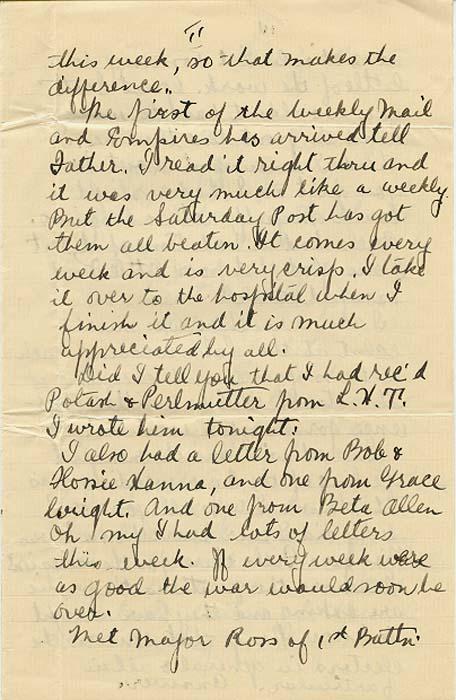 II
this week, so that makes the
difference.
The first of the Weekly Mail
and Empires has arrived tell
Father. I read it right thru and
it was very much like a weekly.
But the Saturday Post has got
them all beaten. It comes every
week and is very crisp. I take
it over to the hospital when I
finish it and it is much
appreciated by all.
Did I tell you that I had rec'd
Potash & Perlmutter from L.H.T.
I wrote him tonight.
I also had a letter from Bob &
Flossie Hanna, and one from Grace
Wright. And one from Beta Allen
Oh my I had lots of letters
this week. If every week were
as good the war would soon be
over.
Met Major Ross of 1st Battn.